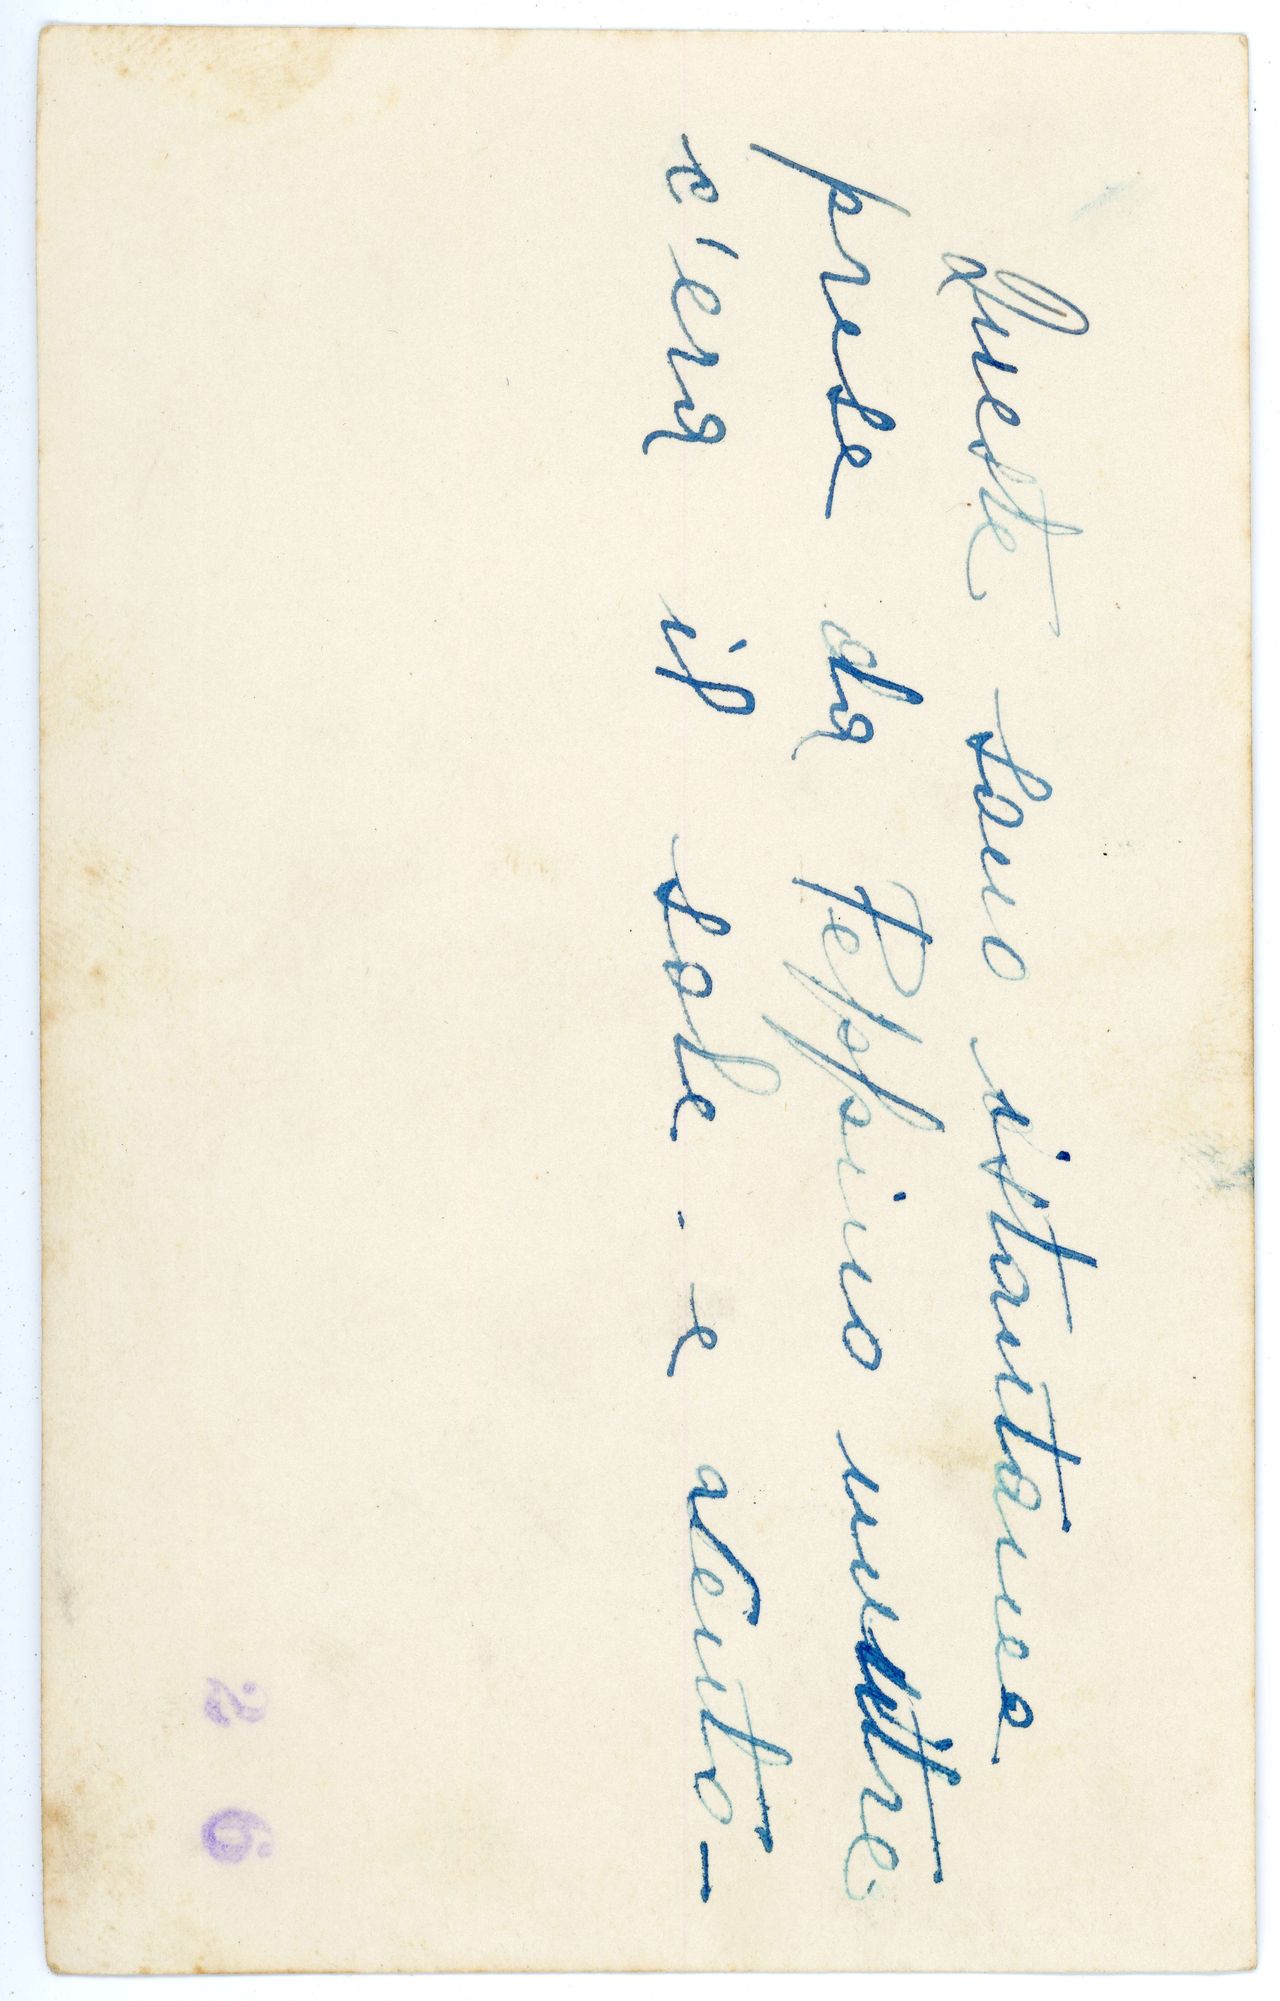 Queste sono istantanee
prese da Peppino mentre
c'era il sole. e vento-
2 6